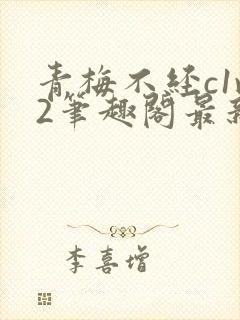 青梅不经c1v
2筆趣阁最新
李喜增